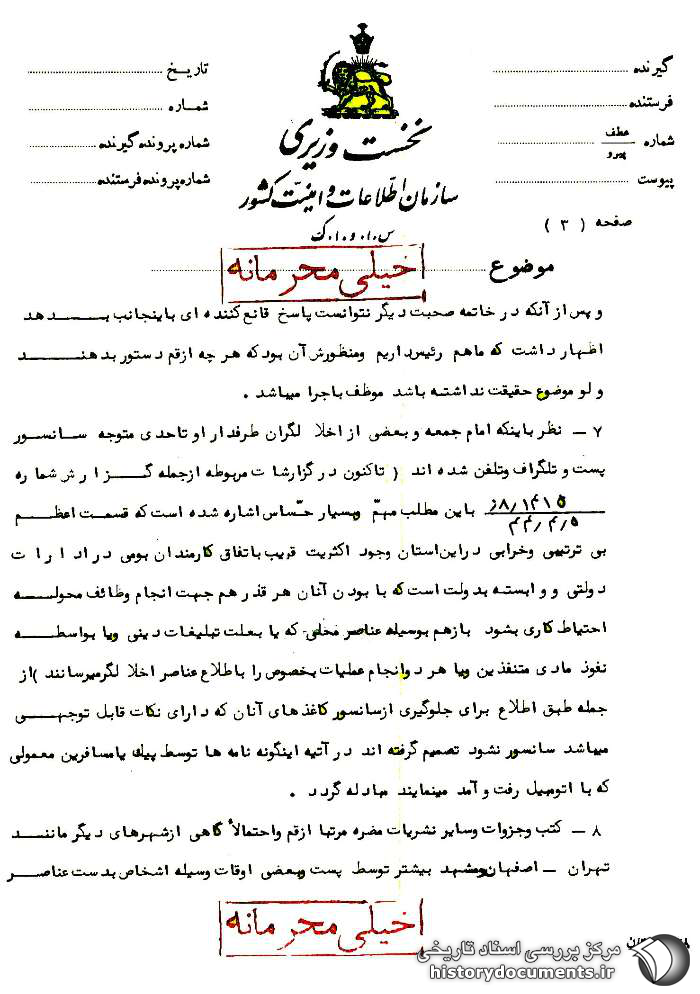 گیرنده
فرستنده
شماره عطف پیرو
پیوست
تاریخ
شماره
شماره پرونده گیرنده
شماره پرونده فرستنده
نخست وزیری
سازمان اطلاعات و امنیت کشور
س.ا.و.ا.ک
صفحه ( ۳ )
موضوع
خیلی محرمانه
و پس از آنکه در خاتمه صحبت دیگر نتوانست پاسخ قانع کننده ای باینجانب بدهد
اظهار داشت که ماهم رئیس داریم ومنظورش آن بود که هر چه از قم دستور بدهند
و لو موضوع حقیقت نداشته باشد موظف باجرا میباشد .
۷ ـ نظر باینکه امام جمعه و بعضی از اخلا لگران طرفدار او تاحدی متوجه سانسور
پست و تلگراف وتلفن شده اند ( تاکنون در گزارشات مربوطه از جمله گزارش شماره
۸/۱۴۱۵ز
۴۴/۴/۵
باین مطلب مهمّ وبسیار حسّاس اشاره شده است که قسمت اعظم
بی ترتیبی وخرابی دراین استان وجود اکثریت قریب باتفاق کارمندان بومی در ادارات
دولتی و وابسته بدولت است که با بودن آنان هر قدر هم جهت انجام وظائف محوله
احتیاط کاری بشود بازهم بوسیله عناصر محلی که یا بعلت تبلیغات دینی ویا بواسطه
نفوذ مادی متنفذین ویا هر دوانجام عملیات بخصوص را باطلاع عناصر اخلا لگر میرسانند )از
جمله طبق اطلاع برای جلوگیری از سانسور کاغذهای آنان که دارای نکات قابل توجهی
میباشد سانسور نشود تصمیم گرفته اند در آتیه اینگونه نامه ها توسط پیک یامسافرین معمولی
که با اتومبیل رفت و آمد مینمایند مبادله گردد .
۸ ـ کتب وجزوات وسایر نشریات مضره مرتبا از قم واحتمالاً گاهی از شهرهای دیگر مانند
تهران ـ اصفهان ومشهد بیشتر توسط پست وبعضی اوقات وسیله اشخاص بدست عناصر
خیلی محرمانه
مرکز بررسی اسناد تاریخی
historydocuments.ir